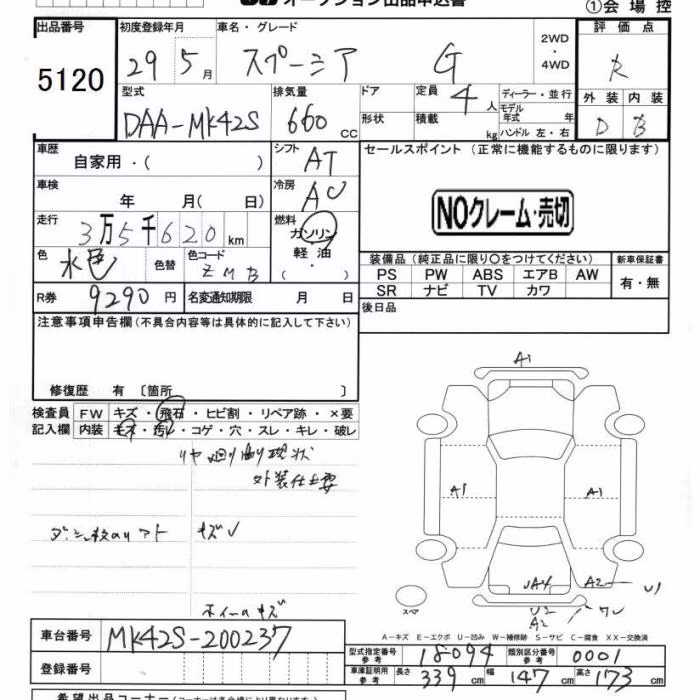 オークション出品申込書
①会場控
出品番号 初度登録年月 車名・グレード 2WD・4WD 評価点
5120 29 5月 スペーシア G R
型式 排気量 ドア 定員 4人 ディーラー・並行 外装 内装
DAA-MK42S 660cc 形状 積載 kg モデル年式 年 ハンドル 左・右 D B
車歴 自家用・( ) シフト AT セールスポイント (正常に機能するものに限ります)
車検 年 月(日) 冷房 AC
NOクレーム・売切
走行 3万5千620km 燃料 ガソリン 軽油 ( ・ )
色 水色 色替 色コード ZMB
装備品 (純正品に限り○をつけてください) 新車保証書
PS PW ABS エアB AW 有・無
SR ナビ TV カワ
R券 9290円 名変通知期限 月 日 後日品
注意事項申告欄 (不具合内容等は具体的に記入して下さい)
修復歴 有 〔箇所 〕
検査員 FW キズ・飛石・ヒビ割・リペア跡・×要
記入欄 内装 キズ・汚レ・コゲ・穴・スレ・キレ・破レ
リヤ廻り 現状
外装仕上要
キズ
ホイールキズ
A1
A1 A1
A2 U1
U2
A2
スペア
A-キズ E-エクボ U-凹み W-補修跡 S-サビ C-腐食 XX-交換済
車台番号 MK42S-200237
型式指定番号 参考 18094 類別区分番号 参考 0001
登録番号 車庫証明用 参考 長さ 339cm 幅 147cm 高さ 173cm
希望出品コーナー